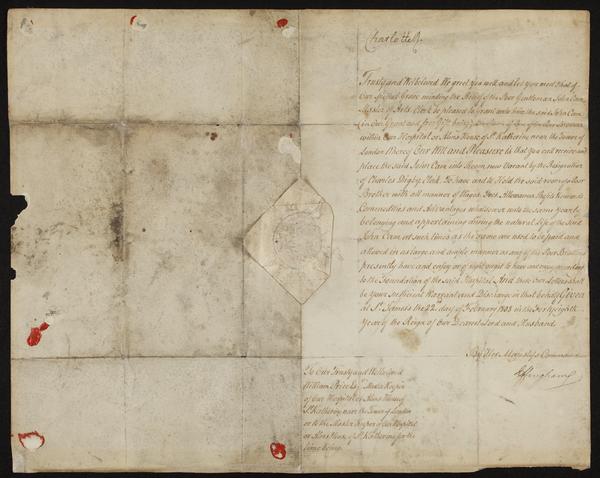 Charlotte R.
Trusty and Welbeloved We greet you well and let you weet that of
Our Special Grace minding the Relief of the Poor Gentleman John Cam
Master of Arts, Clerk be pleased to grant unto him the said John Cam
within Our Hospital or Alms House of St. Katherine near the Tower of
London Whereof Our Will and Pleasure is that you and receive and
place the said John Cam into the room now Vacant by the Resignation
of Charles Digby, Clerk. To have and to Hold the said room of a Poor
Brother with all manner of Wages Fees Allowances Rights
Commodities and Advantages whatsoever unto the same
belonging and appertaining during the natural life of the said
John Cam at such times as the are used to be paid and
allowed in as large and ample manner as any of the Poor Brethren
presently have and enjoy or of right ought to have and enjoy according
to the Foundation of the said Hospital, And these Our Letters shall
be your sufficient Warrant and Discharge in that behalf. Given
at St. James's the 22d. day of February 1808 in the Forty eighth
Year of the Reign of Our Dearest Lord and Husband
By Her Majesty's Command
Effingham
To Our Trusty and Welbeloved
William Price Esqr. Master Keeper
of Our Hospital or Alms House of
St. Katherine near the Tower of London
or to the Master Keeper of Our Hospital
or Alms House of St. Katherine for the
time being.